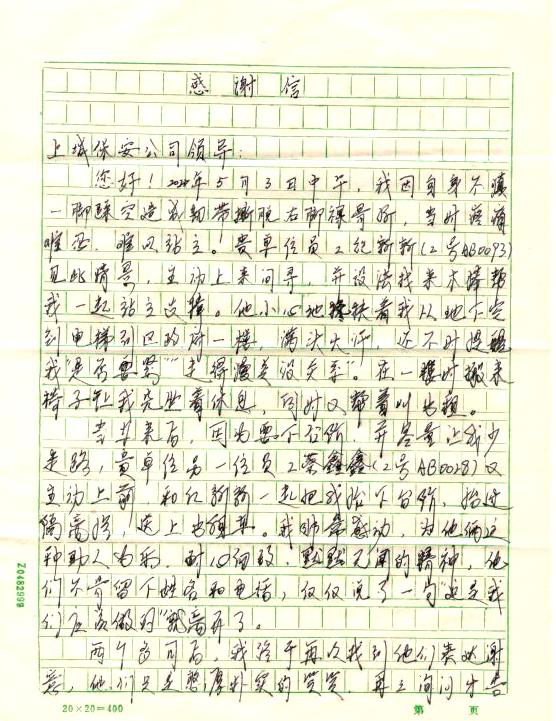 感谢信
上城保安公司领导:
您好!2024年5月3日中午,我因自身不慎
一脚踩空造成韧带撕脱右脚踝骨折,当时疼痛
难忍,难以站立。贵单位员工纪新新(工号AB0093)
见此情景,主动上来问寻,并设法找来木棒帮
我一起站立支撑。他小心地搀扶着我从地下室
到电梯到区政府一楼,满头大汗,还不时提醒
我“是否要紧”“走得慢类没关系”。在一楼时搬来
椅子让我先坐着休息,同时又帮着叫出租。
出租来后,因为要下台阶,并尽量让我少
走路,贵单位另一位员工蔡鑫鑫(工号AB0028)又
主动上前,和纪新新一起把我抬下台阶,抬过
隔离墙,送上出租车。我非常感动,为他俩这
种助人为乐,耐心细致,默默无闻的精神,他
们不肯留下姓名和电话,仅仅说了一句“这是我
们应该做的”就离开了。
两个多月后,我终于再次找到他们表达谢
意,他们只是憨厚朴实的笑笑,再三询问才告
20×20=400
第 页
Z0482999